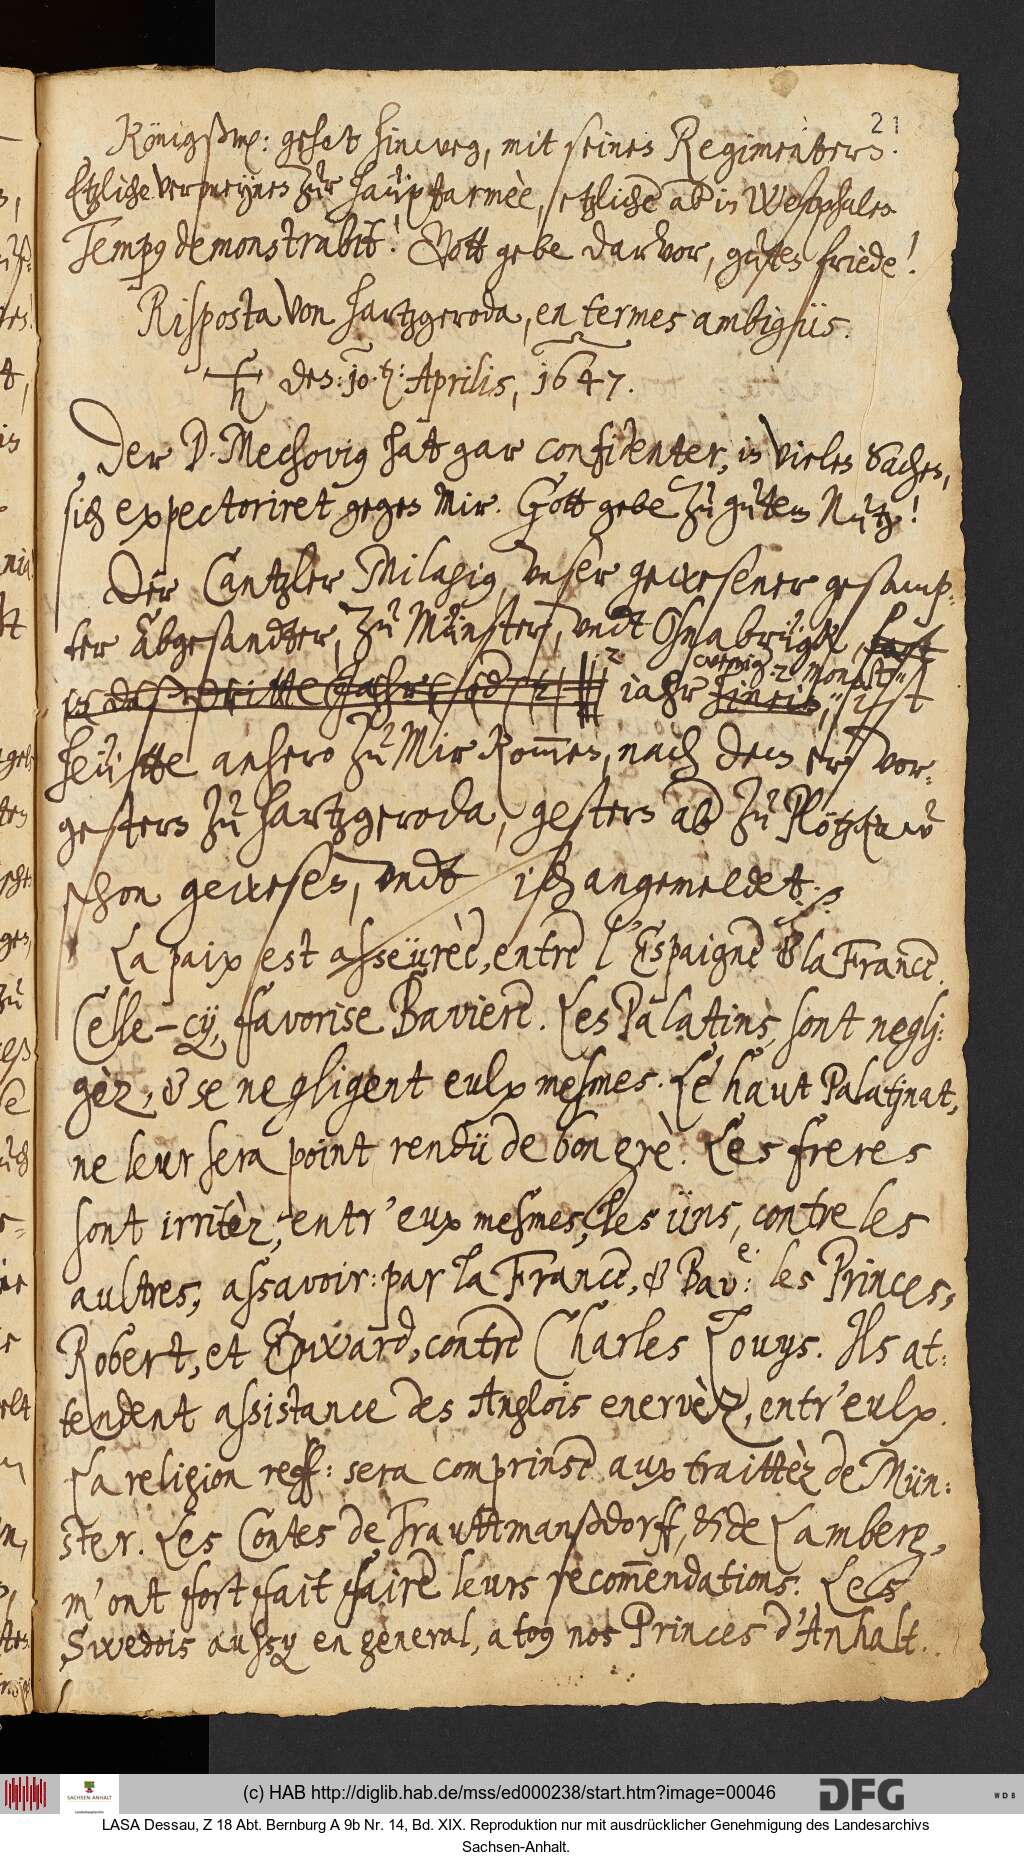 21
Königßm: gehet hinweg, mit seinen Regimentern.
Etzliche vermeynen zur hauptarmèe, etzliche ab in Westphalen
Tempus demonstrabit! Gott gebe darvor, guten friede!
Risposta von Hartzgeroda, en termes ambigüs.
♄ den: 10. h: Aprilis, 1647.
Der D. Mechovius hat gar confidenter, in vielen Sachen,
sich expectoriret gegen Mir. Gott gebe zu gutem Nutz!
Der Cantzler Milagius, unser gewesener gesamp-
ter Abgesandter, zu Münster, undt Osnabrügk, fast
in das dritte Jahr 2 iahr weniger 2 Monat hinein, ist
heütte anhero zu Mir kommen, nach dem er vor-
gestern zu Hartzgeroda, gestern ab zu Plötzkau
schon gewesen, undt sich angemeldet.
La paix est assëurèe, entre l'Espaigne & la France.
Celle-cÿ, favorise Baviere. Les Palatins, sont negli-
gèz, & se negligent eulx mesmes. Le haut Palatjnat,
ne leur sera point rendü de bon grè. Les freres
sont irritèz, entr'eux mesmes, les üns, contre les
aultres, assavoir: par la France, & Bave: les Princes,
Robert, et Edward, contre Charles Louys. Ils at-
tendent assistance des Anglois enervèz, entr'eulx.
La religion reff: sera comprinse aux traittèz de Mün-
ster. Les Contes de Trauttmanßdorff, & de Lamberg,
m'ont fort fait faire leurs recommendations. Les
Swedois aussy en general, a tous nos Princes d'Anhalt.
(c) HAB http://diglib.hab.de/mss/ed000238/start.htm?image=00046
SACHSEN-ANHALT
DFG
WDB
LASA Dessau, Z 18 Abt. Bernburg A 9b Nr. 14, Bd. XIX. Reproduktion nur mit ausdrücklicher Genehmigung des Landesarchivs
Sachsen-Anhalt.